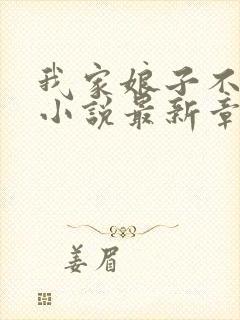 我家娘子不
小说最新章
姜眉